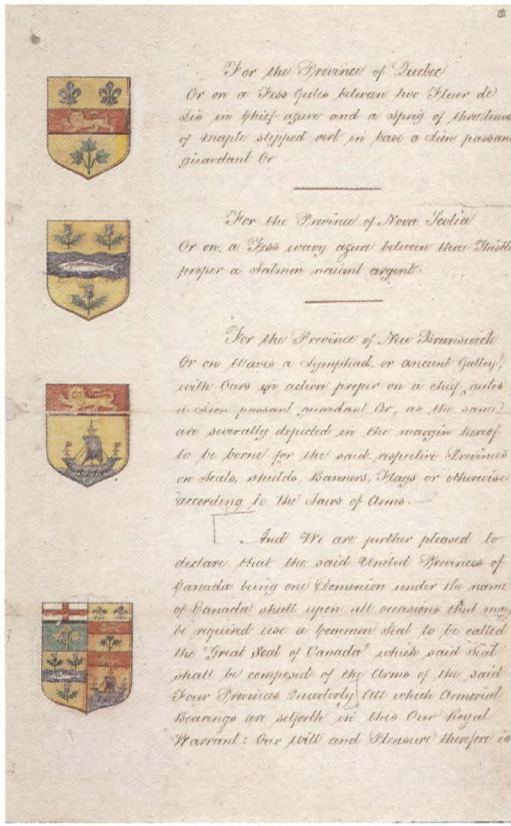 For the Province of Quebec
Or on a Fess Gules between two Fleur de
Lis in Chief azure and a sprig of three leaves
of Maple slipped vert in base a Lion passant
guardant Or
For the Province of Nova Scotia
Or on a Fess wavy azure between three Thistles
proper a Salmon naiant argent.
For the Province of New Brunswick
Or on Waves a Lymphad, or ancient Galley,
with Oars in action proper on a chief gules
a Lion passant guardant Or, as the same
are severally depicted in the margin hereof
to be borne for the said respective Provinces
on Seals, Shields, Banners, Flags or otherwise
according to the Laws of Arms.
And We are further pleased to
declare that the said United Provinces of
Canada being one Dominion under the name
of Canada shall upon all occasions that may
be required use a Common Seal to be called
the "Great Seal of Canada" which said Seal
shall be composed of the Arms of the said
Four Provinces Quarterly, all which Armorial
Bearings are set forth in this Our Royal
Warrant: Our Will and Pleasure therefore is